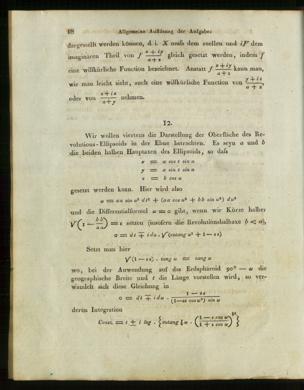 68 Allgemeine Auflösung der Aufgabe:
dargestellt werden können, d. i. X muss dem reellen und iY dem
imaginären Theil von f (x+iy)/(a+z) gleich gesetzt werden, indem f
eine willkürliche Function bezeichnet. Anstatt f (x+iy)/(a+z) kann man,
wie man leicht sieht, auch eine willkürliche Function von (y+iz)/(a+x)
oder von (z+ix)/(a+y) nehmen.
12.
Wir wollen viertens die Darstellung der Oberfläche des Re-
volutions-Ellipsoids in der Ebne betrachten. Es seyn a und b
die beiden halben Hauptaxen des Ellipsoids, so dass
x = a cos t sin u
y = a sin t sin u
z = b cos u
gesetzt werden kann. Hier wird also
ω = aa sin u² dt² + (aa cos u² + bb sin u²) du²
und die Differentialformel ω = 0 gibt, wenn wir Kürze halber
√(1 − bb/aa) = ε setzen (insofern die Revolutionshalbaxe b < a),
0 = dt ∓ i du . √(cotang u² + 1 − εε)
Setzt man hier
√(1 − εε) . tang u = tang w
wo, bei der Anwendung auf das Erdsphäroid 90° − w die
geographische Breite und t die Länge vorstellen wird, so ver-
wandelt sich diese Gleichung in
0 = dt ∓ i dw . (1 − εε)/((1 − εε cos w²) sin w)
deren Integration
Const. = t ± i log . {cotang ½w . ((1 − ε cos w)/(1 + ε cos w))^½ε}